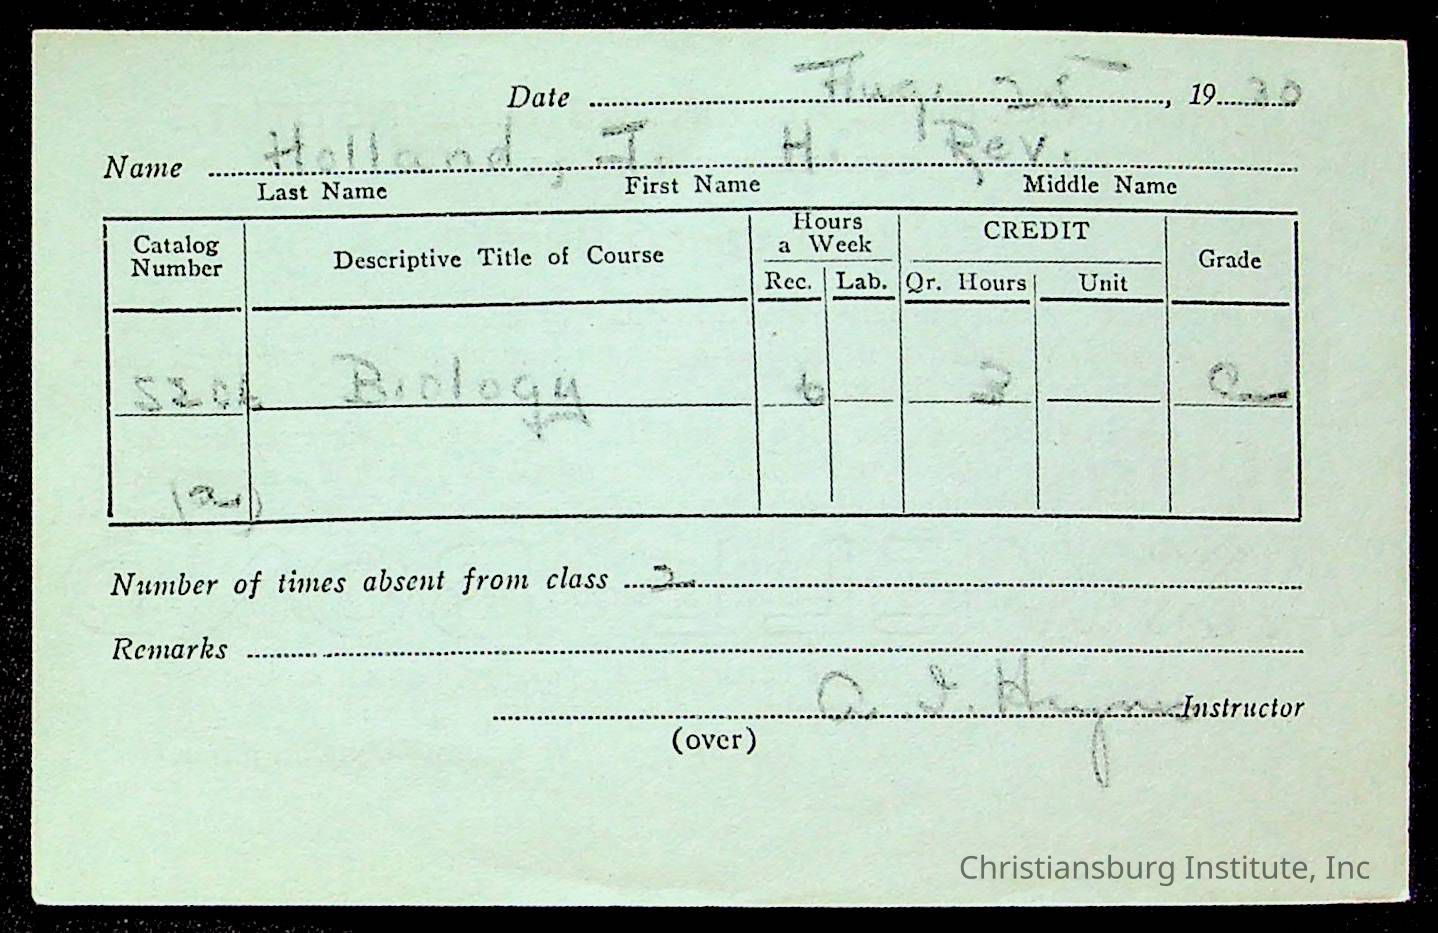 Date Aug. 25, 1930
Name Holland, J. H. Rev.
Last Name First Name Middle Name
Catalog Number Descriptive Title of Course Hours a Week Rec. Lab. CREDIT Qr. Hours Unit Grade
Biology 6 3
Number of times absent from class 2
Remarks
Instructor
(over)
Christiansburg Institute, Inc